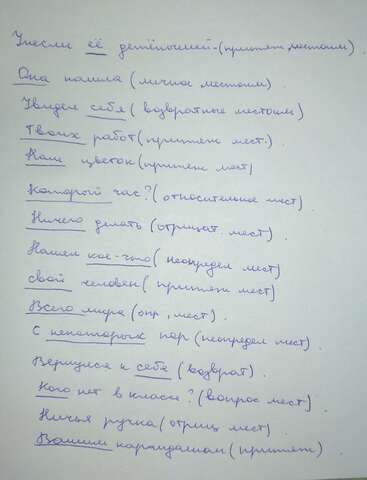 Унесли её детёнышей-(притяж местоим).
Она пошла (личное местоим).
Увидел себя (возвратные местоим)
Твоих работ (притяж мест.)
Наш цветок (притяж мест)
Который час? (относительное мест)
Ничего делать (отрицат. мест).
Нашел кое-что (неопредел мест)
свой человек (притяж мест)
Всего мира (опр, мест).
С некоторых пор (неопредел мест).
Вернулся к себе (возврат).
Кого нет в классе? (вопрос мест).
Ничья ручка (отриц мест)
Вашим карандашом (притяж).